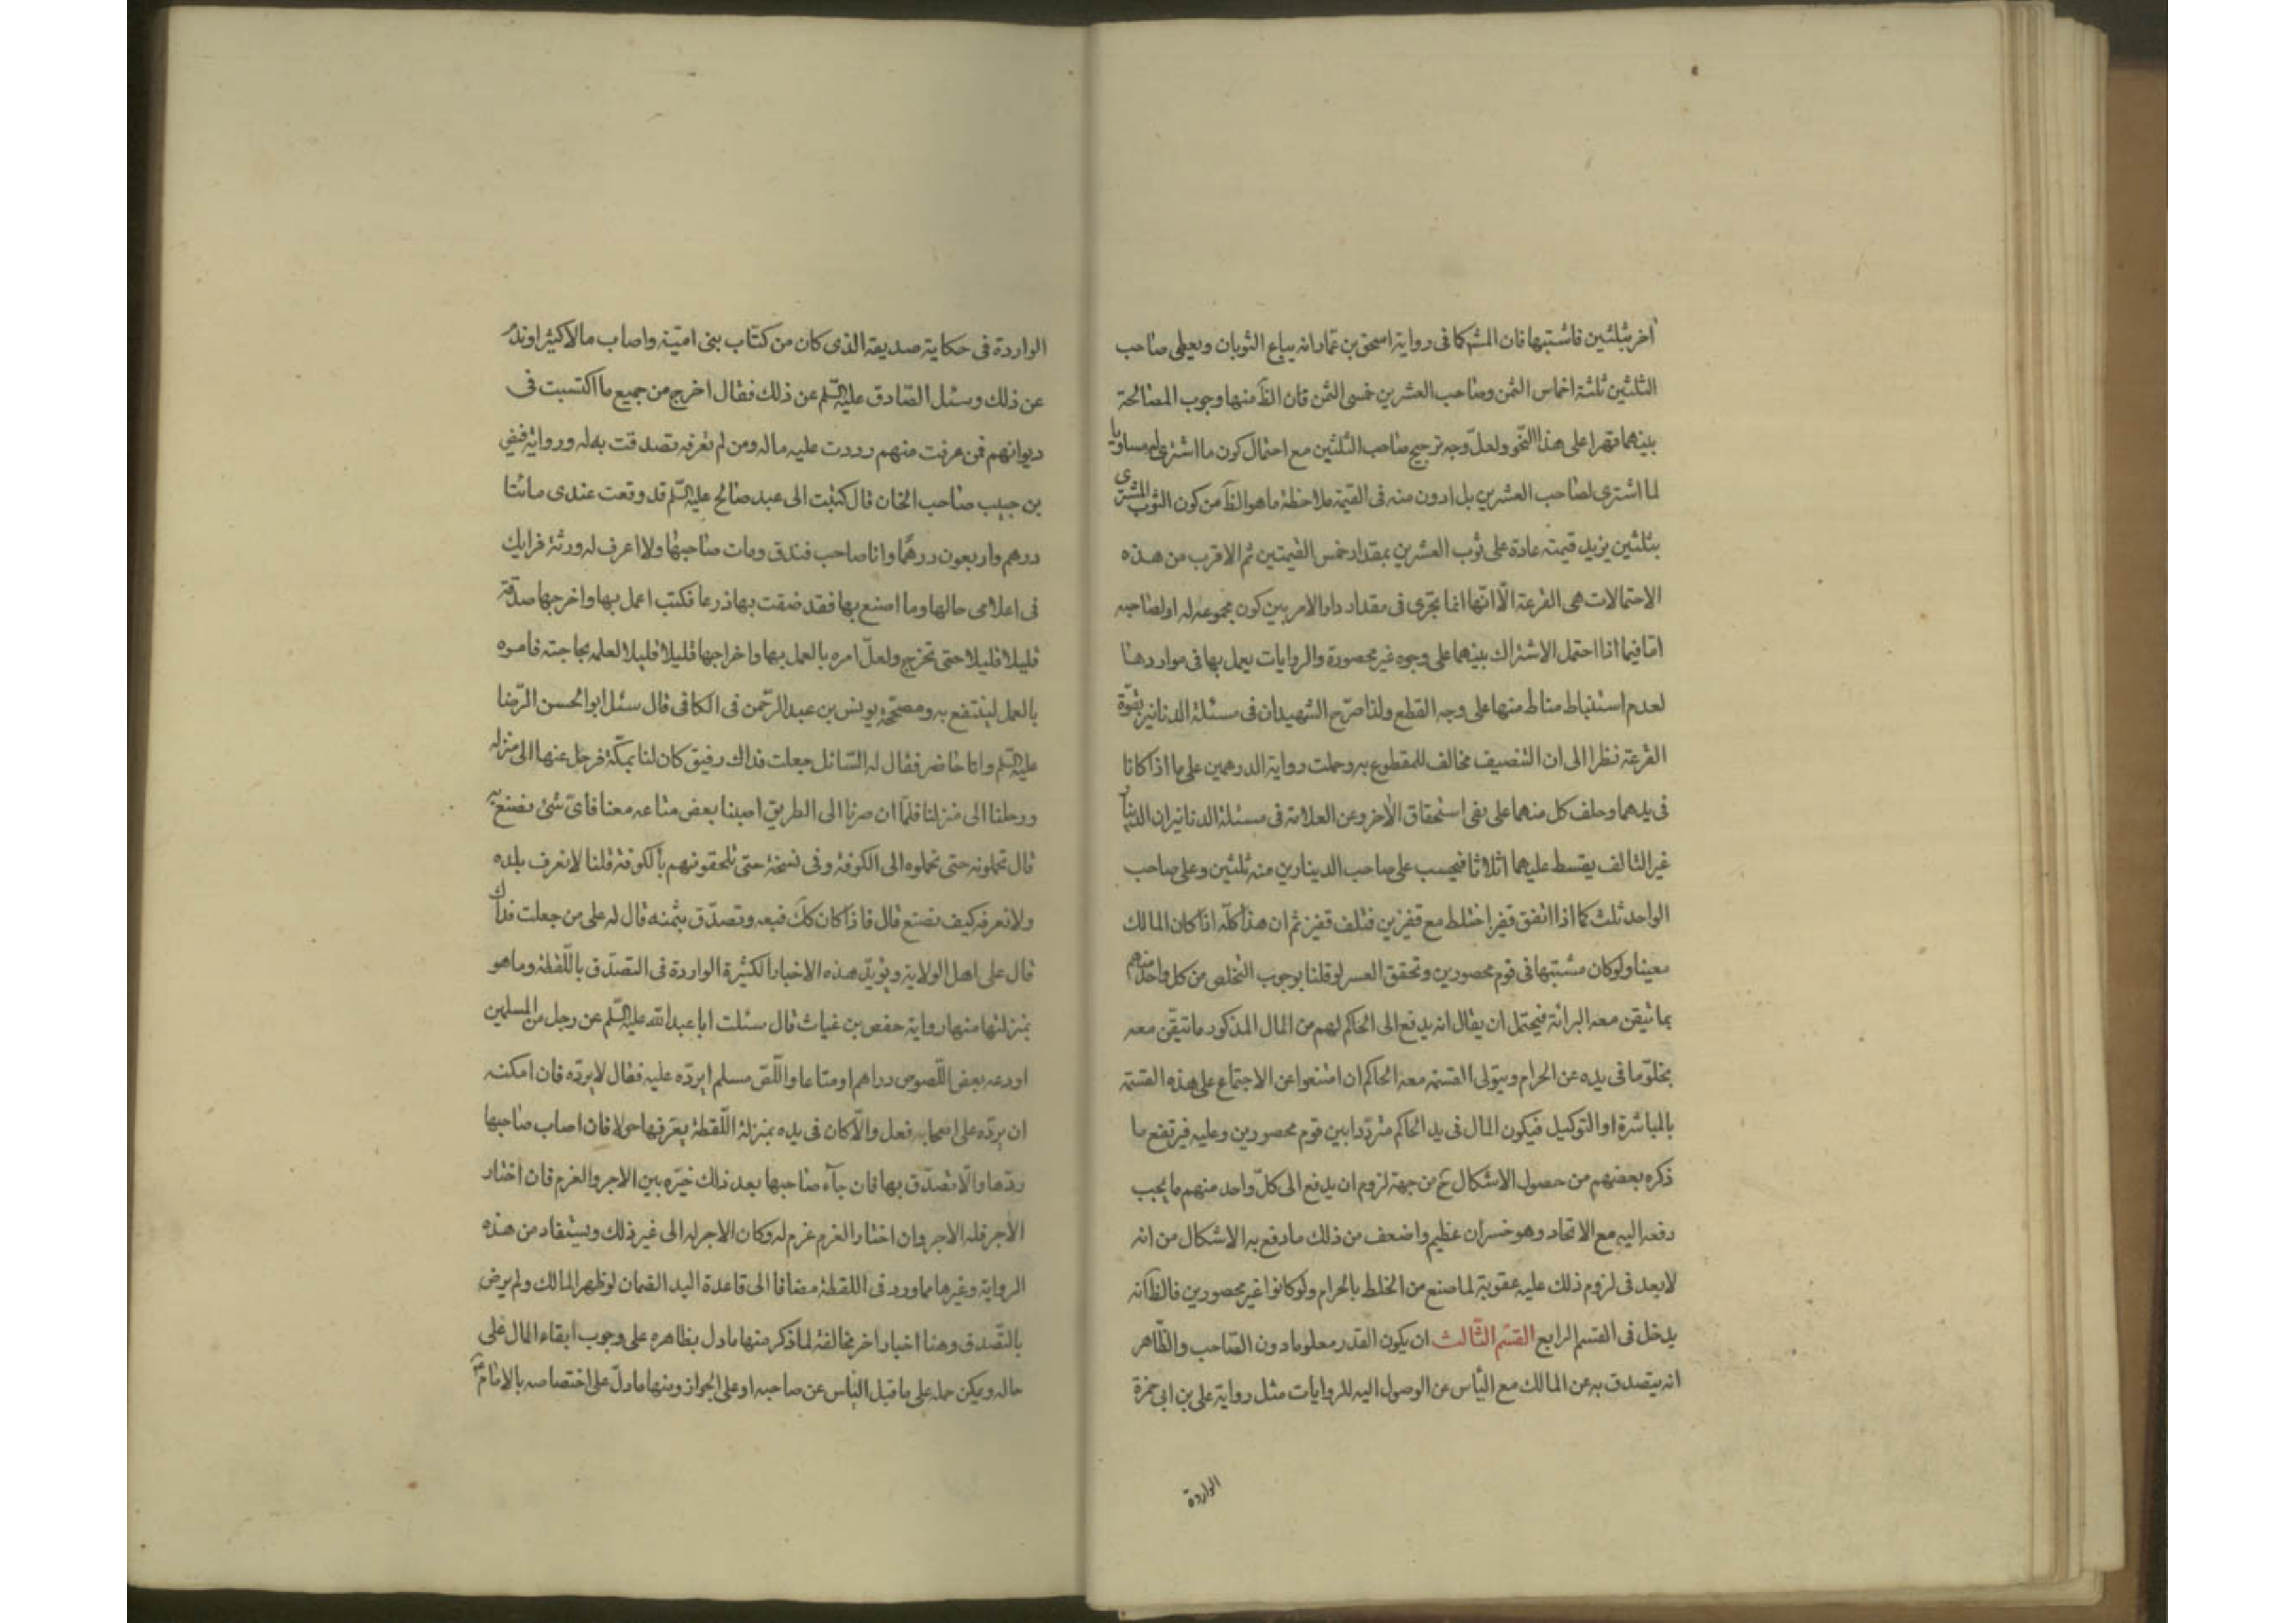 اخر بثلثين فاشتبها فان المشركا فى رواية اسحق بن عمار انه يباع الثوبان ويعطى صاحب
الثلثين ثلثة اخماس الثمن وصاحب العشرين خمسى الثمن فان الظَ منها وجوب المصالحة
بينهما قهرا على هذا النحو ولعلّ وجه ترجيح صاحب الثلثين مع احتمال كون ما اشترى له مساويا
لما اشترى لصاحب العشرين بل ادون منه فى القيمة ملاحظة ما هو الظَ من كون الثوب المشترى
بثلثين يزيد قيمته عادة على ثوب العشرين بمقدار خمس القيمتين ثم الاقرب من هذه
الاحتمالات هى القرعة الّا انّها انما تجرى فى مقدار دار الامر بين كون مجموعه له او لصاحبه
امّا فيما اذا احتمل الاشتراك بينهما على وجوه غير محصورة والروايات يعمل بها فى مواردها
لعدم استنباط مناط منها على وجه القطع ولذا صرّح الشهيدان فى مسئلة الدنانير بقوّة
القرعة نظرا الى ان التنصيف مخالف للمقطوع به وحملت رواية الدرهمين على ما اذا كانا
فى يدهما وحلف كل منهما على نفى استحقاق الاخر وعن العلامة فى مسئلة الدنانير ان الدينار
غير التالف يقسط عليهما اثلاثا فيحسب على صاحب الدينارين منه ثلثين وعلى صاحب
الواحد ثلث كما اذا اتفق قفيز اختلط مع قفيزين فتلف قفيز ثم ان هذا كلّه اذا كان المالك
معينا ولو كان مشتبها فى قوم محصورين وتحقق العسر لو قلنا بوجوب التخلص من كل واحد منهم
بما تيقن معه البرائة فيحتمل ان يقال انه يدفع الى الحاكم لهم من المال المذكور ما تيقّن معه
بخلوّ ما فى يده عن الحرام ويتولى القسمة معه الحاكم ان امتنعوا عن الاجتماع على هذه القسمة
بالمباشرة او التوكيل فيكون المال فى يد الحاكم متردّدا بين قوم محصورين وعليه فيرتفع ما
ذكره بعضهم من حصول الاشكال ح من جهة لزوم ان يدفع الى كلّ واحد منهم ما يجب
دفعه اليه مع الاتحاد وهو خسران عظيم واضعف من ذلك ما دفع به الاشكال من انه
لا بعد فى لزوم ذلك عليه عقوبة لما صنع من الخلط بالحرام ولو كانوا غير محصورين فالظَ انه
يدخل فى القسم الرابع القسم الثّالث ان يكون القدر معلوما دون الصّاحب والظّاهر
انه يتصدق به عن المالك مع اليأس عن الوصول اليه للروايات مثل رواية على بن ابى حمزة
الواردة
الواردة فى حكاية صديقه الذى كان من كتّاب بنى اميّة واصاب مالا كثيرا وندم
عن ذلك وسئل الصّادق عليه السّلم عن ذلك فقال اخرج من جميع ما اكتسبت فى
ديوانهم فمن عرفت منهم رددت عليه ماله ومن لم تعرفه تصدقت به له ورواية فيض
بن حبيب صاحب الخان قال كتبت الى عبد صالح عليه السّلم قد وقعت عندى مائتا
درهم واربعون درهمًا وانا صاحب فندق ومات صاحبها ولا اعرف له ورثة فرايك
فى اعلامى حالها وما اصنع بها فقد ضقت بها ذرعا فكتب اعمل بها واخرجها صدقة
قليلا قليلا حتى تخرج ولعلّ امره بالعمل بها واخراجها قليلا قليلا لعلمه بحاجته فامره
بالعمل لينتفع به ومصحّحة يونس بن عبد الرّحمن فى الكافى قال سئل ابو الحسن الرّضا
عليه السّلم وانا حاضر فقال له السّائل جعلت فداك رفيق كان لنا بمكّة فرحل عنها الى منزله
ورحلنا الى منزلنا فلمّا ان صرنا الى الطريق اصبنا بعض متاعه معنا فاىّ شئ نصنع به
قال تحملونه حتى تحملوه الى الكوفة وفى نسخة حتى تلحقونهم بالكوفة قلنا لا نعرف بلده
ولا نعرفه كيف نصنع قال فاذا كان كك فبعه وتصدّق بثمنه قال له على من جعلت فداك
قال على اهل الولاية ويؤيّد هذه الاخبار الكثيرة الواردة فى التصدّق باللّقطة وما هو
بمنزلتها منها رواية حفص بن غياث قال سئلت ابا عبد الله عليه السّلم عن رجل من المسلمين
اودعه بعض اللّصوص دراهم او متاعا واللّصّ مسلم ايردّه عليه فقال لا يردّه فان امكنه
ان يردّه على اصحابه فعل والّا كان فى يده بمنزلة اللّقطة يعرّفها حولا فان اصاب صاحبها
ردّها والّا تصدّق بها فان جآء صاحبها بعد ذلك خيّره بين الاجر والغرم فان اختار
الأجر فله الاجر وان اختار الغرم غرم له وكان الاجر له الى غير ذلك ويستفاد من هذه
الرواية وغيرها مما ورد فى اللقطة مضافا الى قاعدة اليد الضمان لو ظهر المالك ولم يرض
بالتّصدق وهنا اخبار اخر مخالفة لما ذكر منها ما دل بظاهره على وجوب ابقاء المال على
حاله ويمكن حمله على ما قبل اليأس عن صاحبه او على الجواز ومنها ما دلّ على اختصاصه بالامام